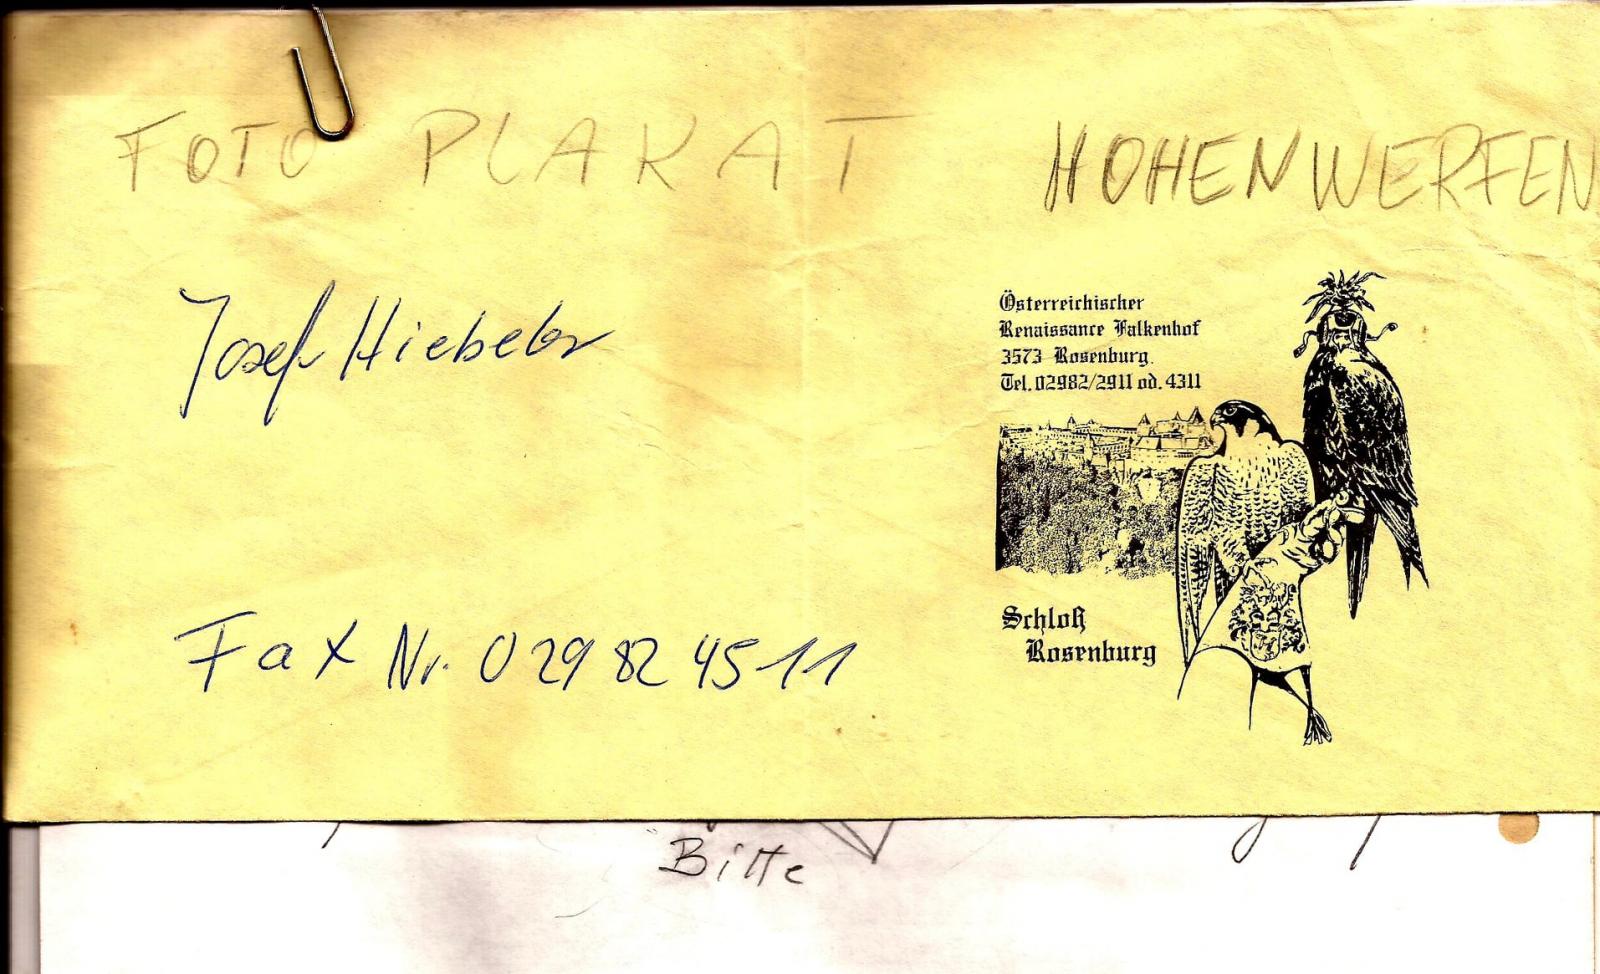 FOTO PLAKAT HOHENWERFEN
Josef Hiebeler
Fax Nr. 02982 4511
Österreichischer
Renaissance Falkenhof
3573 Rosenburg.
Tel. 02982/2911 od. 4311
Schloß
Rosenburg
Bitte